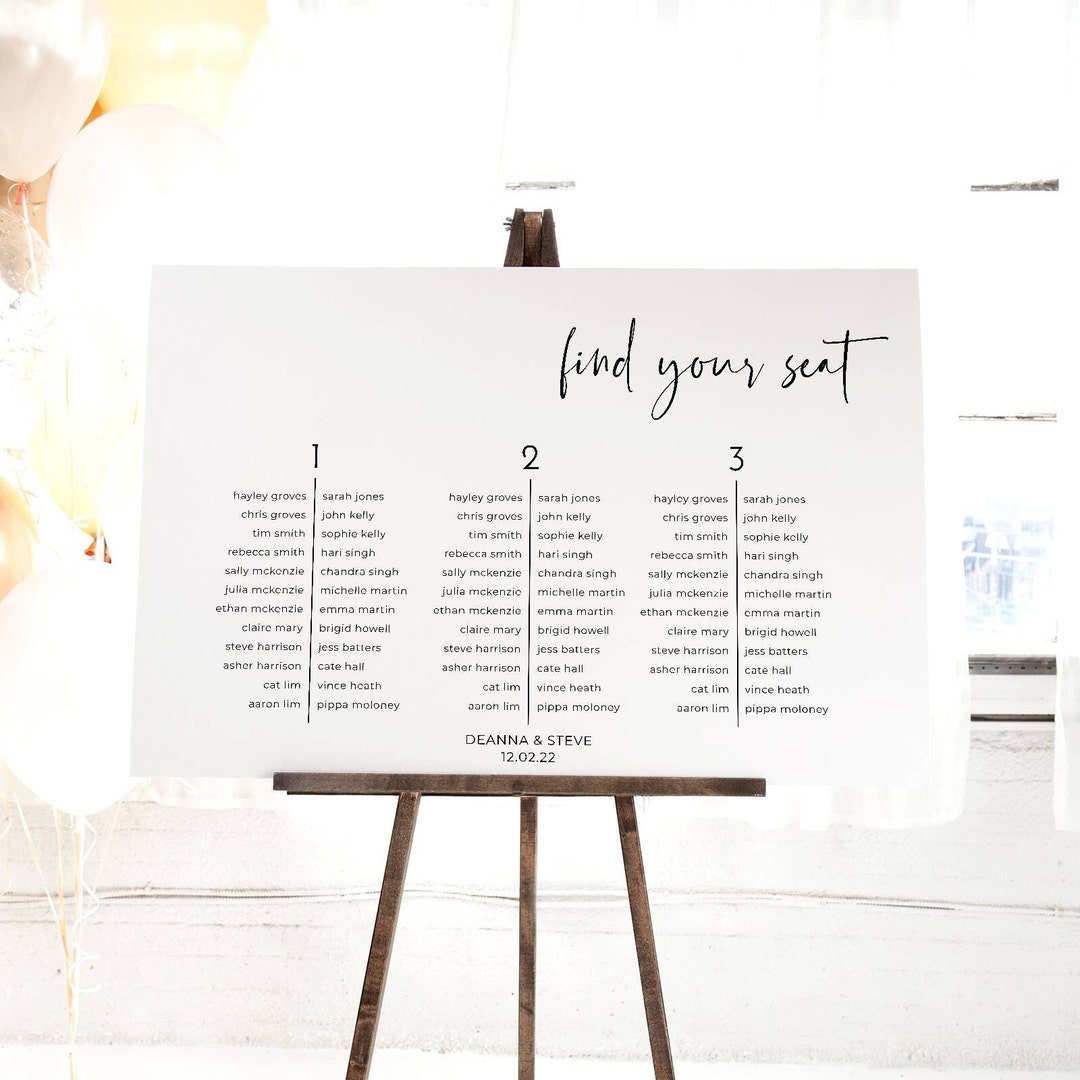 find your seat
1
hayley groves sarah jones
chris groves john kelly
tim smith sophie kelly
rebecca smith hari singh
sally mckenzie chandra singh
julia mckenzie michelle martin
ethan mckenzie emma martin
claire mary brigid howell
steve harrison jess batters
asher harrison cate hall
cat lim vince heath
aaron lim pippa moloney
2
hayley groves sarah jones
chris groves john kelly
tim smith sophie kelly
rebecca smith hari singh
sally mckenzie chandra singh
julia mckenzie michelle martin
ethan mckenzie emma martin
claire mary brigid howell
steve harrison jess batters
asher harrison cate hall
cat lim vince heath
aaron lim pippa moloney
3
hayley groves sarah jones
chris groves john kelly
tim smith sophie kelly
rebecca smith hari singh
sally mckenzie chandra singh
julia mckenzie michelle martin
ethan mckenzie emma martin
claire mary brigid howell
steve harrison jess batters
asher harrison cate hall
cat lim vince heath
aaron lim pippa moloney
DEANNA & STEVE
12.02.22